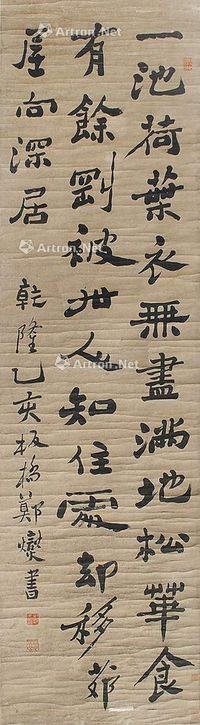 一池荷葉衣無盡滿地松華食
有餘剛被世人知住處却移茆
屋向深居
乾隆乙亥板橋鄭燮書
Artron.Net
Artron.Net
Artron.Net
Artron.Net
Artron.Net